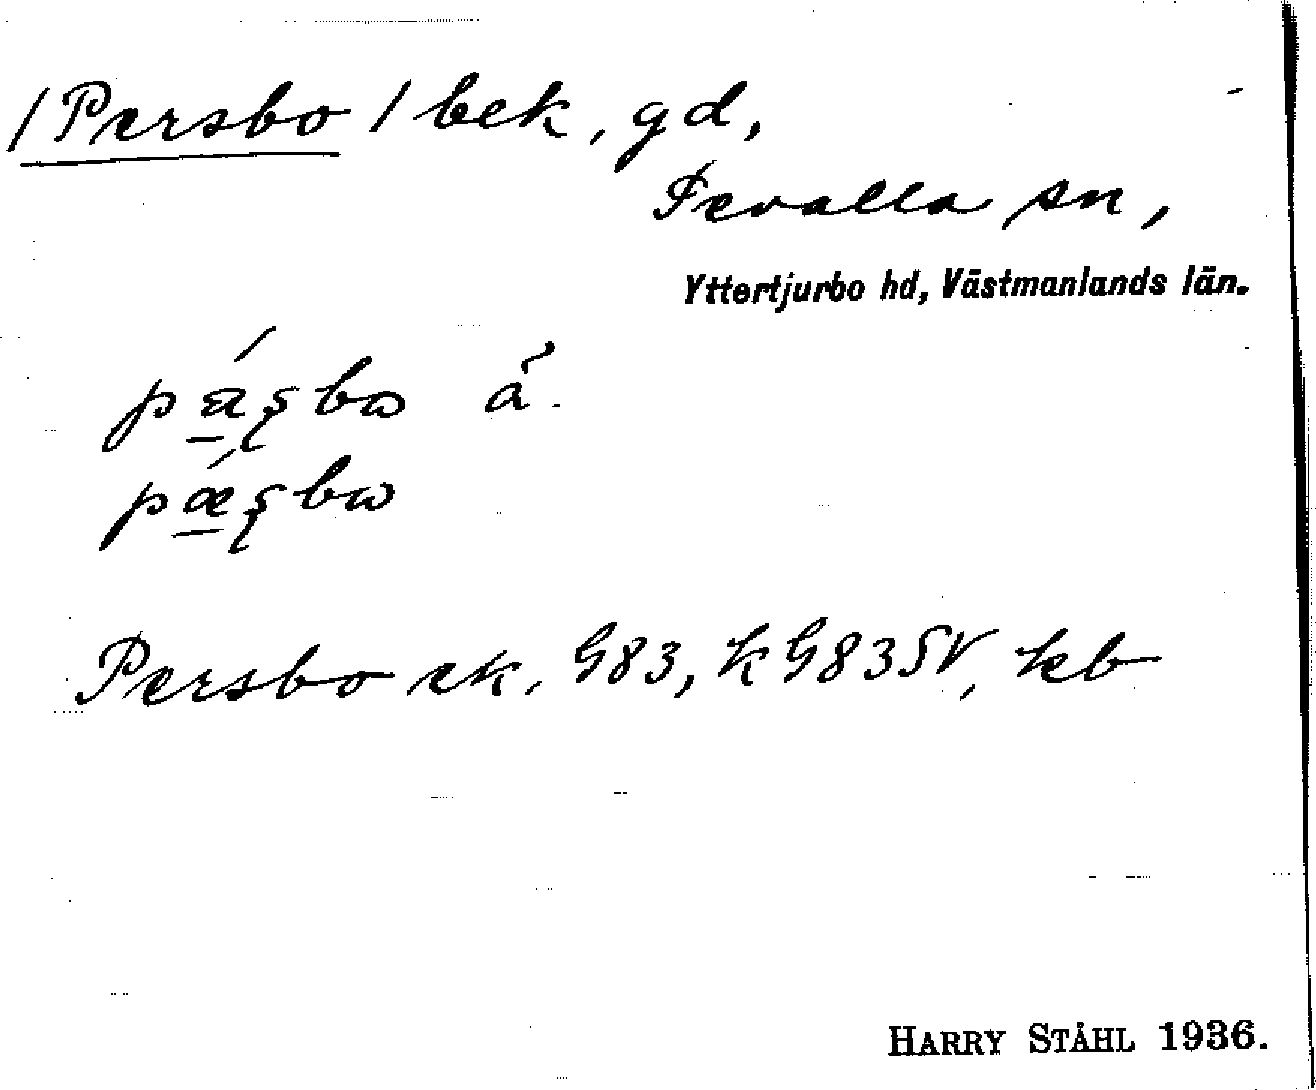 /Persbo/ bek, gd,
Tevalla sn,
Yttertjurbo hd, Västmanlands län.
Persbo ek, G83, kG83SV, kb
HARRY STÅHL 1936.